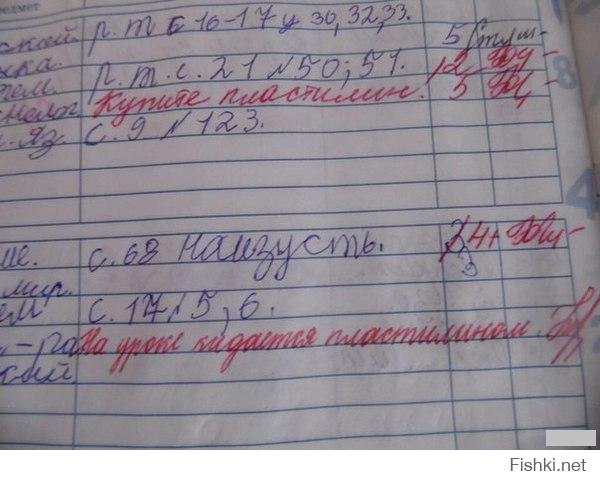 предмет
р.т с 16-17 у 30, 32, 33.
5
р.т.с. 21 №50; 51.
12
Купите пластилин.
5
яз. с. 9 №123.
с. 68 наизусть.
4+
мир.
с. 17 №5, 6.
На уроке кидается пластилином.
8
4
Fishki.net